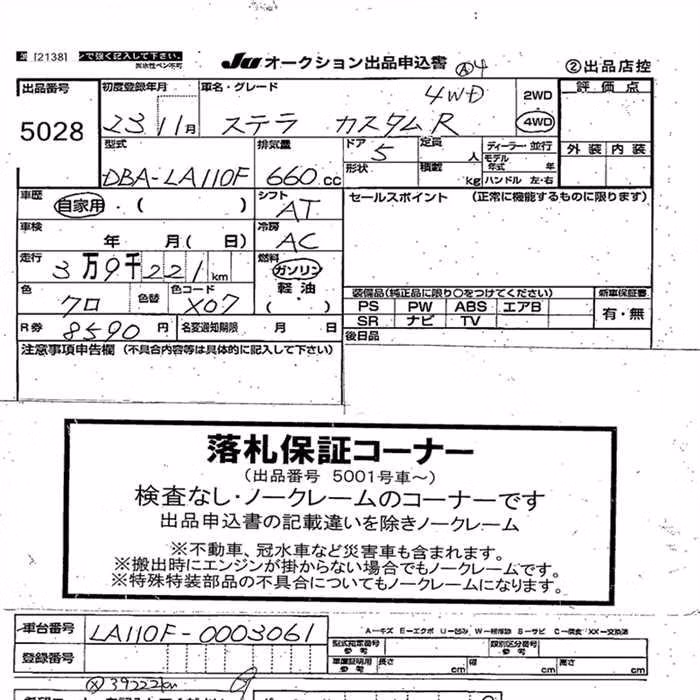 [2138] ンで強く記入して下さい。
JU オークション出品申込書 Ⓐ4 ②出品店控
出品番号 初度登録年月 車名・グレード 4WD 2WD 評価点
5028 23 11月 ステラ カスタムR 4WD
型式 排気量 ドア 5 定員 人 ディーラー・並行 外装 内装
DBA-LA110F 660cc 形状 積載 kg モデル年式 年 ハンドル 左・右
車歴 自家用・( ) シフト AT セールスポイント (正常に機能するものに限ります)
車検 年 月( 日) 冷房 AC
走行 3万9千221km 燃料 ガソリン
色 クロ 色替 色コード X07 軽油 ・ ( ) 装備品(純正品に限り○をつけてください) 新車保証書
PS PW ABS エアB 有・無
R券 8590円 名変通知期限 月 日 SR ナビ TV
注意事項申告欄 (不具合内容等は具体的に記入して下さい) 後日品
落札保証コーナー
(出品番号 5001号車〜)
検査なし・ノークレームのコーナーです
出品申込書の記載違いを除きノークレーム
※不動車、冠水車など災害車も含まれます。
※搬出時にエンジンが掛からない場合でもノークレームです。
※特殊特装部品の不具合についてもノークレームになります。
車台番号 LA110F-0003061 A－キズ E－エクボ U－凹み W－補修跡 S－サビ C－腐食 XX－交換済
登録番号 型式指定番号 参考 類別区分番号 参考
車庫証明用 参考 長さ cm 幅 cm 高さ cm